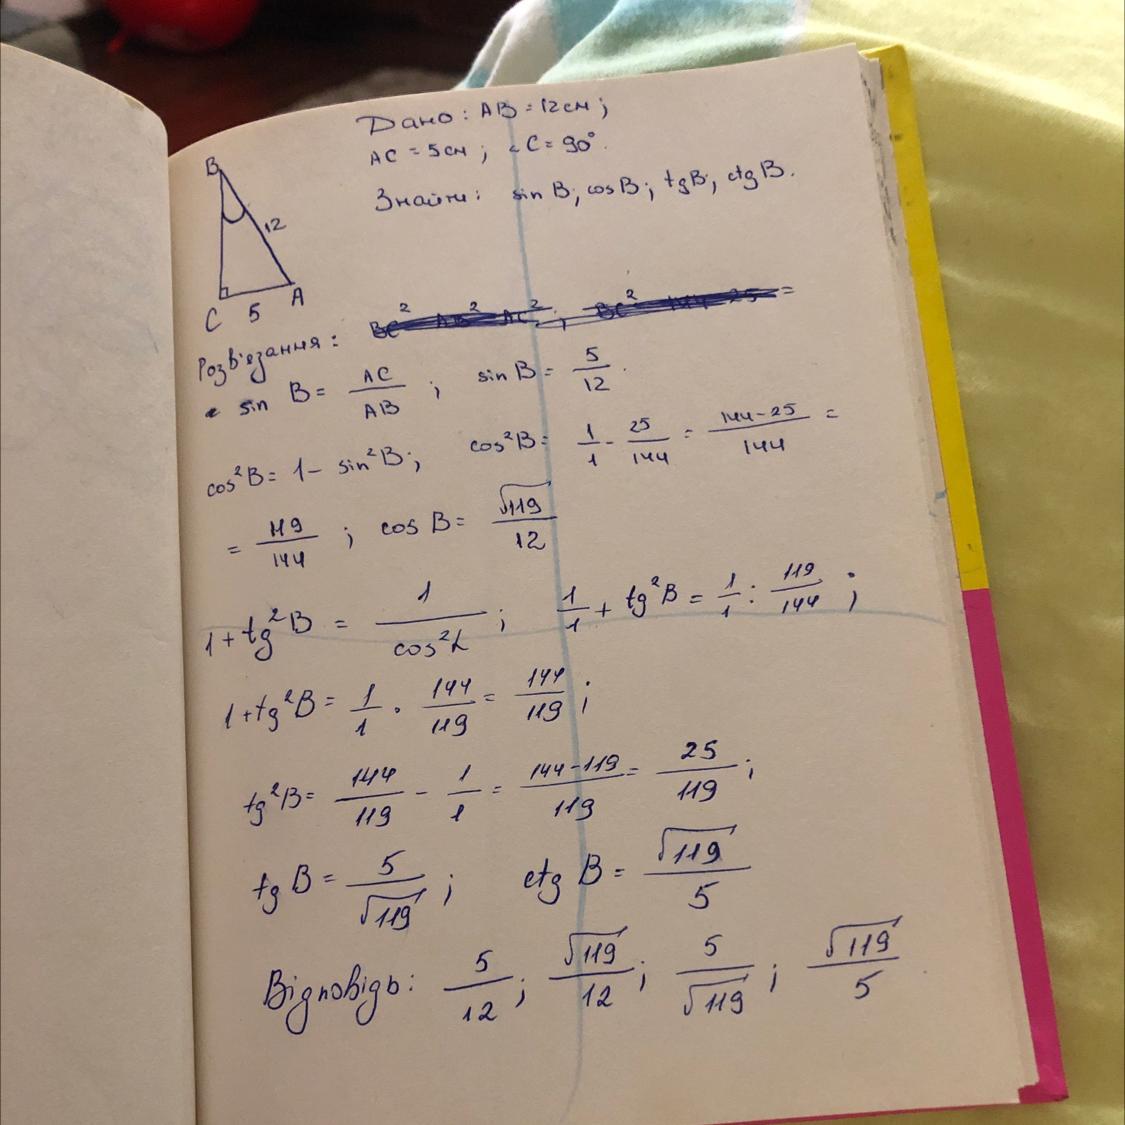 Дано: AB = 12см;
AC = 5см; ∠C = 90°.
Знайти: sin B; cos B; tg B; ctg B.
B
12
C 5 A
Розв'язання:
sin B = AC/AB; sin B = 5/12.
cos²B = 1 - sin²B; cos²B = 1/1 - 25/144 = (144-25)/144 =
= 119/144; cos B = √119/12
1 + tg²B = 1/cos²L; 1/1 + tg²B = 1/1 : 119/144;
1 + tg²B = 1/1 · 144/119 = 144/119;
tg²B = 144/119 - 1/1 = (144-119)/119 = 25/119;
tg B = 5/√119; ctg B = √119/5
Відповідь: 5/12; √119/12; 5/√119; √119/5.